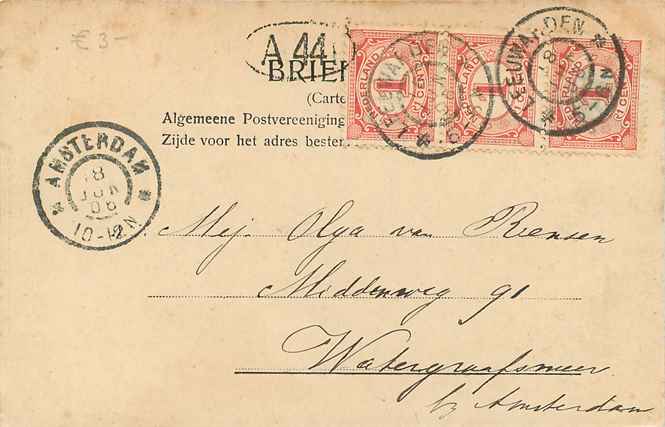 € 3-
A 44
BRIE
(Carte
Algemeene Postvereeniging
Zijde voor het adres bestem
NEDERLAND
1
CENT
NEDERLAND
1
CENT
NEDERLAND
1
CENT
LEEUWARDEN
LEEUWARDEN
8
AMSTERDAM
8
06
10-12N
Mej. Olga van Rensen
Middenweg 91
Watergraafsmeer
bij Amsterdam